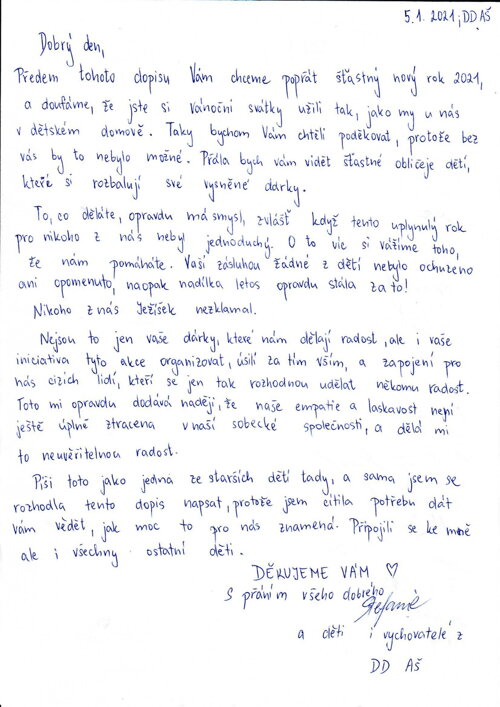 5.1. 2021, DD AŠ
Dobrý den,
Předem tohoto dopisu Vám chceme popřát šťastný nový rok 2021,
a doufáme, že jste si vánoční svátky užili tak, jako my u nás
v dětském domově. Taky bychom Vám chtěli poděkovat, protože bez
vás by to nebylo možné. Přála bych vám vidět šťastné obličeje dětí,
kteří si rozbalují své vysněné dárky.
To, co děláte, opravdu má smysl, zvlášť když tento uplynulý rok
pro nikoho z nás nebyl jednoduchý. O to víc si vážíme toho,
že nám pomáháte. Vaší zásluhou žádné z dětí nebylo ochuzeno
ani opomenuto, naopak nadílka letos opravdu stála za to!
Nikoho z nás Ježíšek nezklamal.
Nejsou to jen vaše dárky, které nám dělají radost, ale i vaše
iniciativa tyto akce organizovat, úsilí za tím vším, a zapojení pro
nás cizích lidí, kteří se jen tak rozhodnou udělat někomu radost.
Toto mi opravdu dodává naději, že naše empatie a laskavost není
ještě úplně ztracena v naší sobecké společnosti, a dělá mi
to neuvěřitelnou radost.
Píši toto jako jedna ze starších dětí tady, a sama jsem se
rozhodla tento dopis napsat, protože jsem cítila potřebu dát
vám vědět, jak moc to pro nás znamená. Připojili se ke mně
ale i všechny ostatní děti.
DĚKUJEME VÁM ♡
S přáním všeho dobrého
Stefanie
a děti i vychovatelé z
DD AŠ